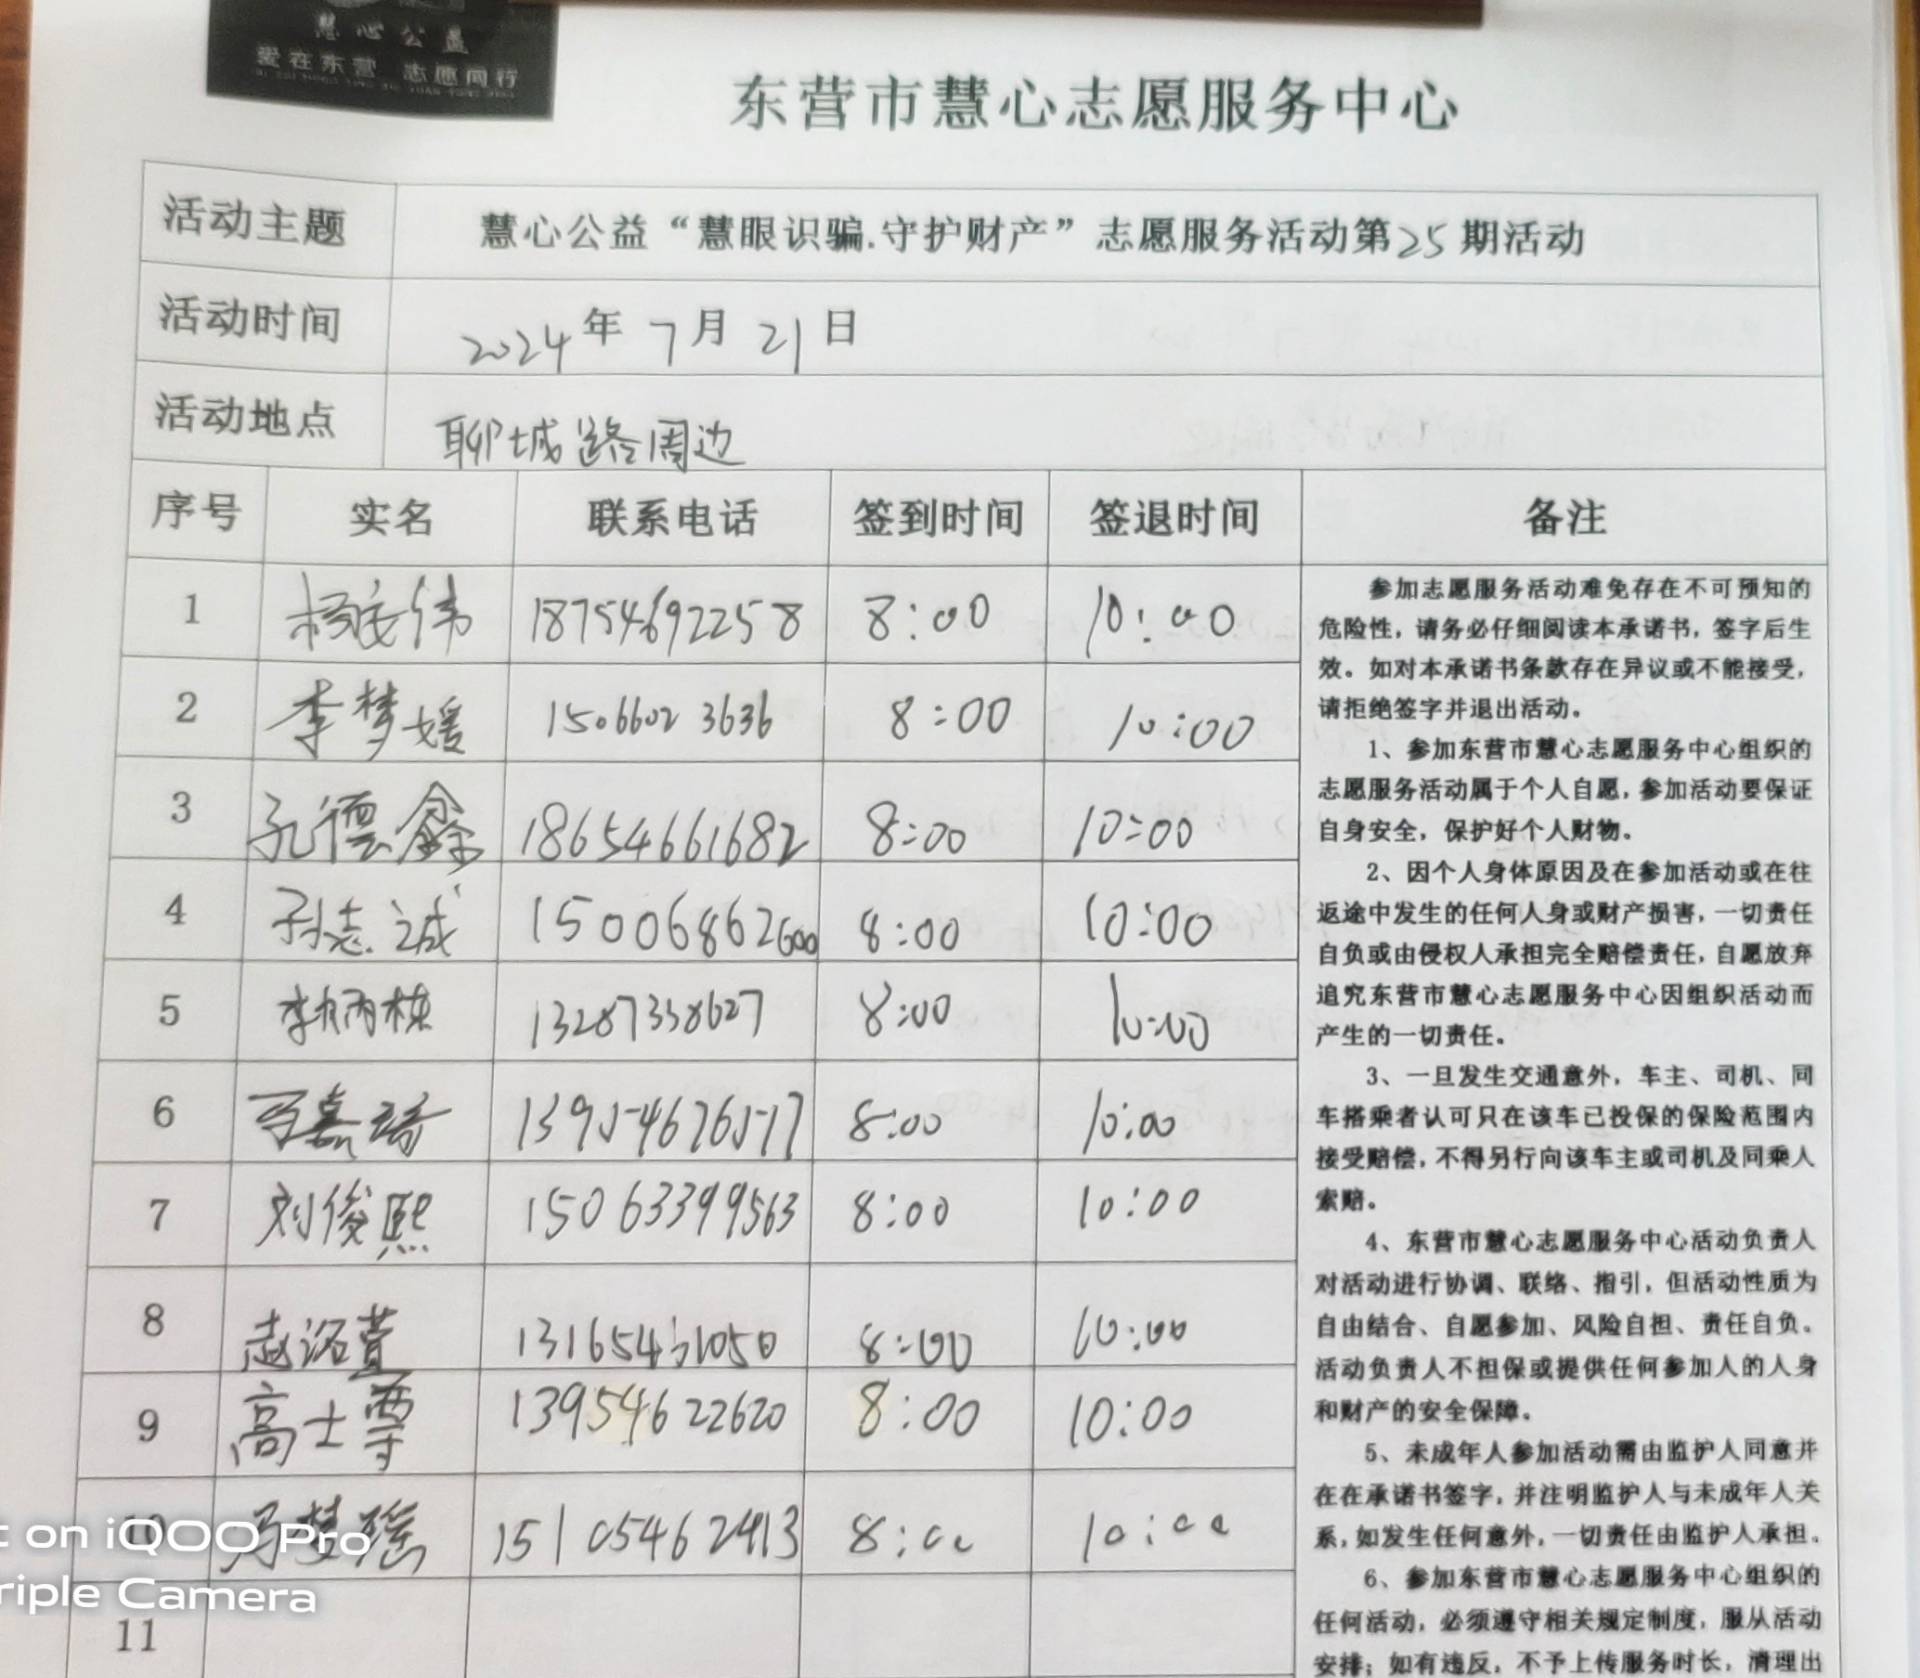 慧心公益
爱在东营 志愿同行
东营市慧心志愿服务中心
活动主题 慧心公益“慧眼识骗.守护财产”志愿服务活动第25期活动
活动时间 2024年7月21日
活动地点 聊城路周边
序号 实名 联系电话 签到时间 签退时间 备注
1 杨安伟 18754692258 8:00 10:00
2 李梦媛 15066023636 8:00 10:00
3 孔德鑫 18654661682 8:00 10:00
4 孙志诚 15006862600 8:00 10:00
5 李炳栋 13287338627 8:00 10:00
6 嘉琦 13954676517 8:00 10:00
7 刘俊熙 15063399563 8:00 10:00
8 赵洺萱 8:00 10:00
9 高士尊 13954622620 8:00 10:00
10 马梦瑶 15105462413 8:00 10:00
11
参加志愿服务活动难免存在不可预知的
危险性，请务必仔细阅读本承诺书，签字后生
效。如对本承诺书条款存在异议或不能接受，
请拒绝签字并退出活动。
1、参加东营市慧心志愿服务中心组织的
志愿服务活动属于个人自愿，参加活动要保证
自身安全，保护好个人财物。
2、因个人身体原因及在参加活动或在往
返途中发生的任何人身或财产损害，一切责任
自负或由侵权人承担完全赔偿责任，自愿放弃
追究东营市慧心志愿服务中心因组织活动而
产生的一切责任。
3、一旦发生交通意外，车主、司机、同
车搭乘者认可只在该车已投保的保险范围内
接受赔偿，不得另行向该车主或司机及同乘人
索赔。
4、东营市慧心志愿服务中心活动负责人
对活动进行协调、联络、指引，但活动性质为
自由结合、自愿参加、风险自担、责任自负。
活动负责人不担保或提供任何参加人的人身
和财产的安全保障。
5、未成年人参加活动需由监护人同意并
在在承诺书签字，并注明监护人与未成年人关
系，如发生任何意外，一切责任由监护人承担。
6、参加东营市慧心志愿服务中心组织的
任何活动，必须遵守相关规定制度，服从活动
安排；如有违反，不予上传服务时长，清理出
t on iQOO Pro
riple Camera